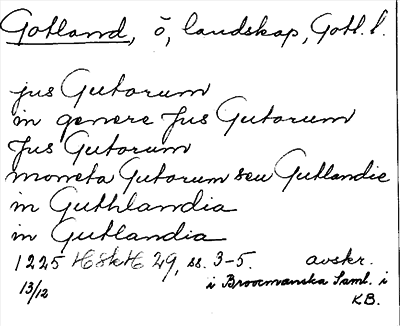 Gotland, ö, landskap, Gotl. l.
jus Gutorum
in genere Jus Gutorum
Jus Gutorum
moneta Gutorum seu Gutlandie
in Guthlandia
in Gutlandia
1225 HSkH 29, ss. 3-5. avskr.
13/12 i Broocmanska Saml. i
KB.